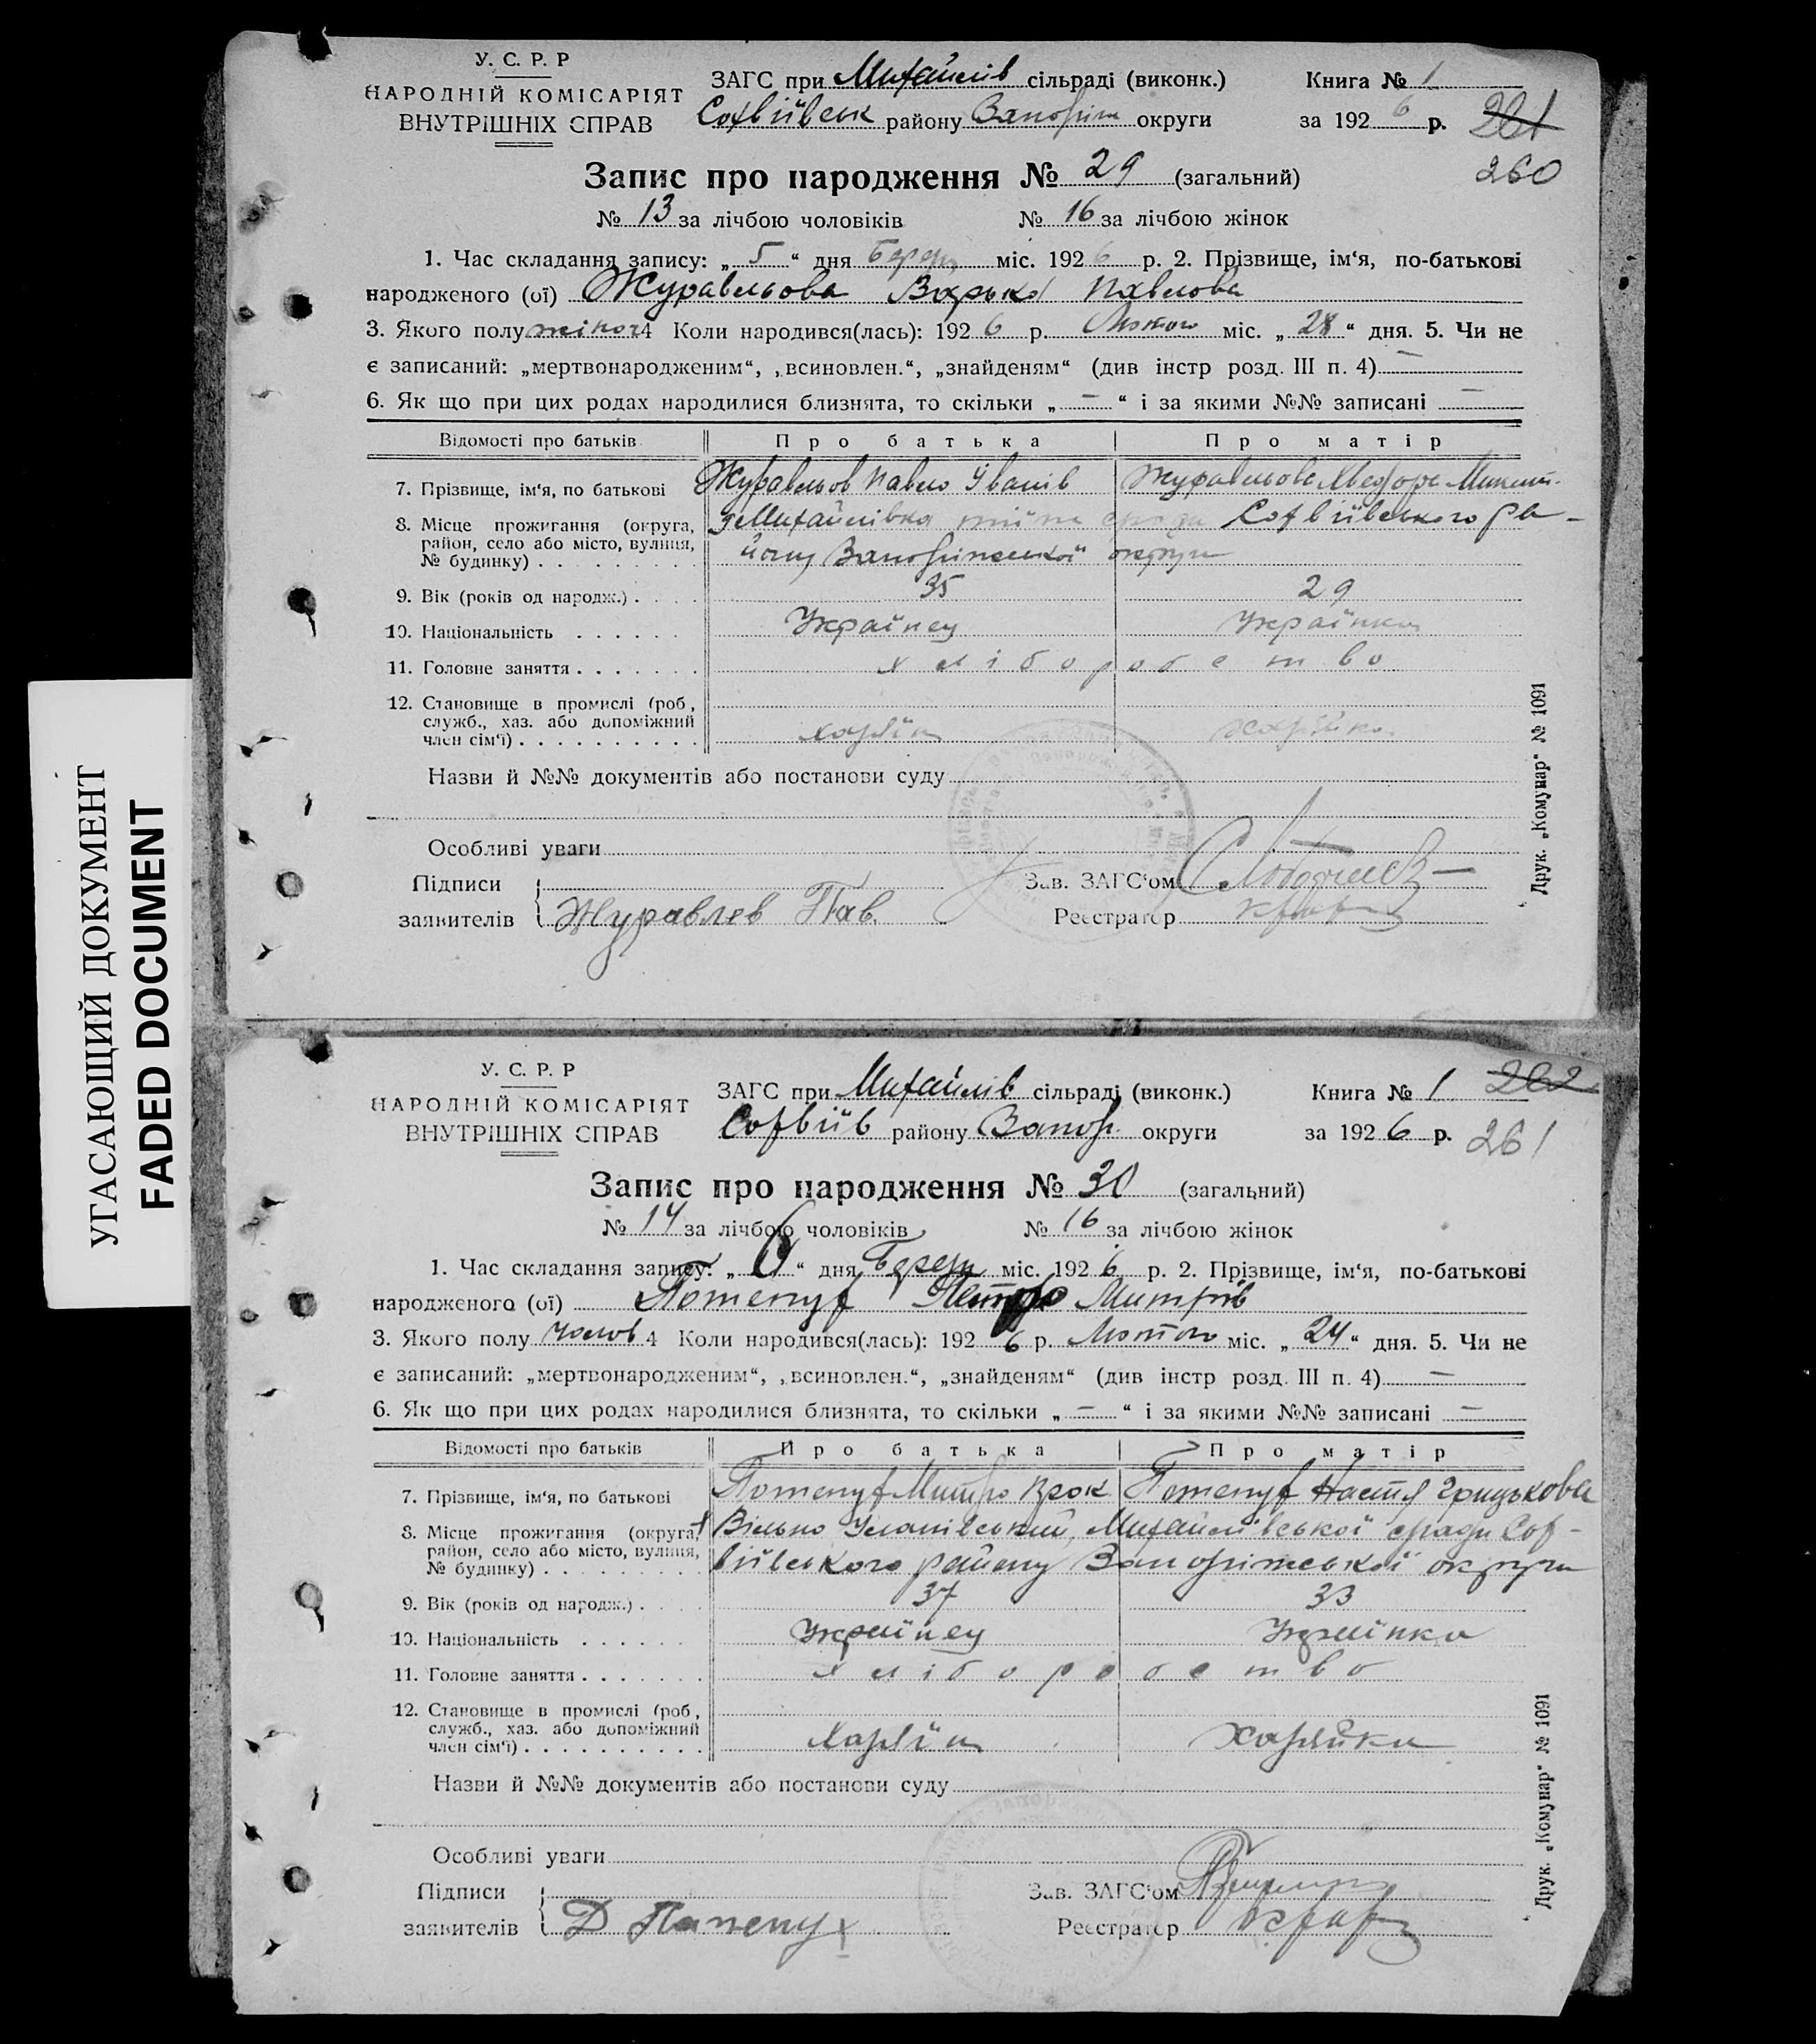 УГАСАЮЩИЙ ДОКУМЕНТ
FADED DOCUMENT
У. С. Р. Р
НАРОДНІЙ КОМІСАРІЯТ
ВНУТРІШНІХ СПРАВ
ЗАГС при Михайлів сільраді (виконк.)
Софіївськ району Запоріж округи
Книга № 1
за 1926 р.
261
260
Запис про народження № 29 (загальний)
№ 13 за лічбою чоловіків № 16 за лічбою жінок
1. Час складання запису: „5“ дня Берез міс. 1926 р. 2. Прізвище, ім‘я, по-батькові
народженого (ої) Журавльова Варька Павлова
3. Якого полу жіноч 4 Коли народився(лась): 1926 р. Лютого міс. „28“ дня. 5. Чи не
є записаний: „мертвонародженим“, „всиновлен.“, „знайденям“ (див інстр розд. III п. 4) —
6. Як що при цих родах народилися близнята, то скільки „—“ і за якими №№ записані —
Відомості про батьків Про батька Про матір
7. Прізвище, ім‘я, по батькові Журавльов Павло Іванів Журавльова Хведора
8. Місце прожигання (округа, район, село або місто, вулиця, № будинку) Михайлівка Софіївського ра-
йону Запоріжської округи
9. Вік (років од народж.) 35 29
10. Національність Українец Українка
11. Головне заняття хліборобство
12. Становище в промислі (роб, служб., хаз. або допоміжний член сім‘ї) хазяїн хазяйка
Назви й №№ документів або постанови суду
Особливі уваги
Підписи
заявителів Журавлев Пав.
Зав. ЗАГС‘ом
Реєстратор
Друк. „Комунар“ № 1091
У. С. Р. Р
НАРОДНІЙ КОМІСАРІЯТ
ВНУТРІШНІХ СПРАВ
ЗАГС при Михайлів сільраді (виконк.)
Софіїв району Запор. округи
Книга № 1
за 1926 р.
262
261
Запис про народження № 30 (загальний)
№ 14 за лічбою чоловіків № 16 за лічбою жінок
1. Час складання запису: „6“ дня Берез міс. 1926 р. 2. Прізвище, ім‘я, по-батькові
народженого (ої) Потепух Петро Митрів
3. Якого полу чолов 4 Коли народився(лась): 1926 р. Лютого міс. „24“ дня. 5. Чи не
є записаний: „мертвонародженим“, „всиновлен.“, „знайденям“ (див інстр розд. III п. 4) —
6. Як що при цих родах народилися близнята, то скільки „—“ і за якими №№ записані —
Відомості про батьків Про батька Про матір
7. Прізвище, ім‘я, по батькові Потепух Митро Потепух Настя Грицькова
8. Місце прожигання (округа, район, село або місто, вулиця, № будинку) Вільно Уланівський, Михайлівської сради Соф-
іївського району Запоріжської округи
9. Вік (років од народж.) 37 33
10. Національність Українец Українка
11. Головне заняття хліборобство
12. Становище в промислі (роб, служб., хаз. або допоміжний член сім‘ї) хазяїн хазяйка
Назви й №№ документів або постанови суду
Особливі уваги
Підписи
заявителів Д Патепух
Зав. ЗАГС‘ом
Реєстратор
Друк. „Комунар“ № 1091